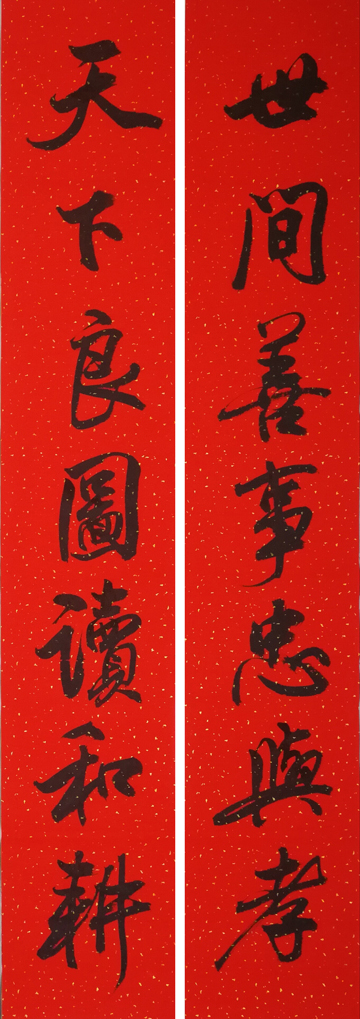 世間善事忠與孝
天下良圖讀和耕